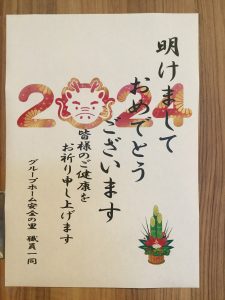 明けまして
おめでとう
ございます
2024
皆様のご健康を
お祈り申し上げます
グループホーム安全の里 職員一同